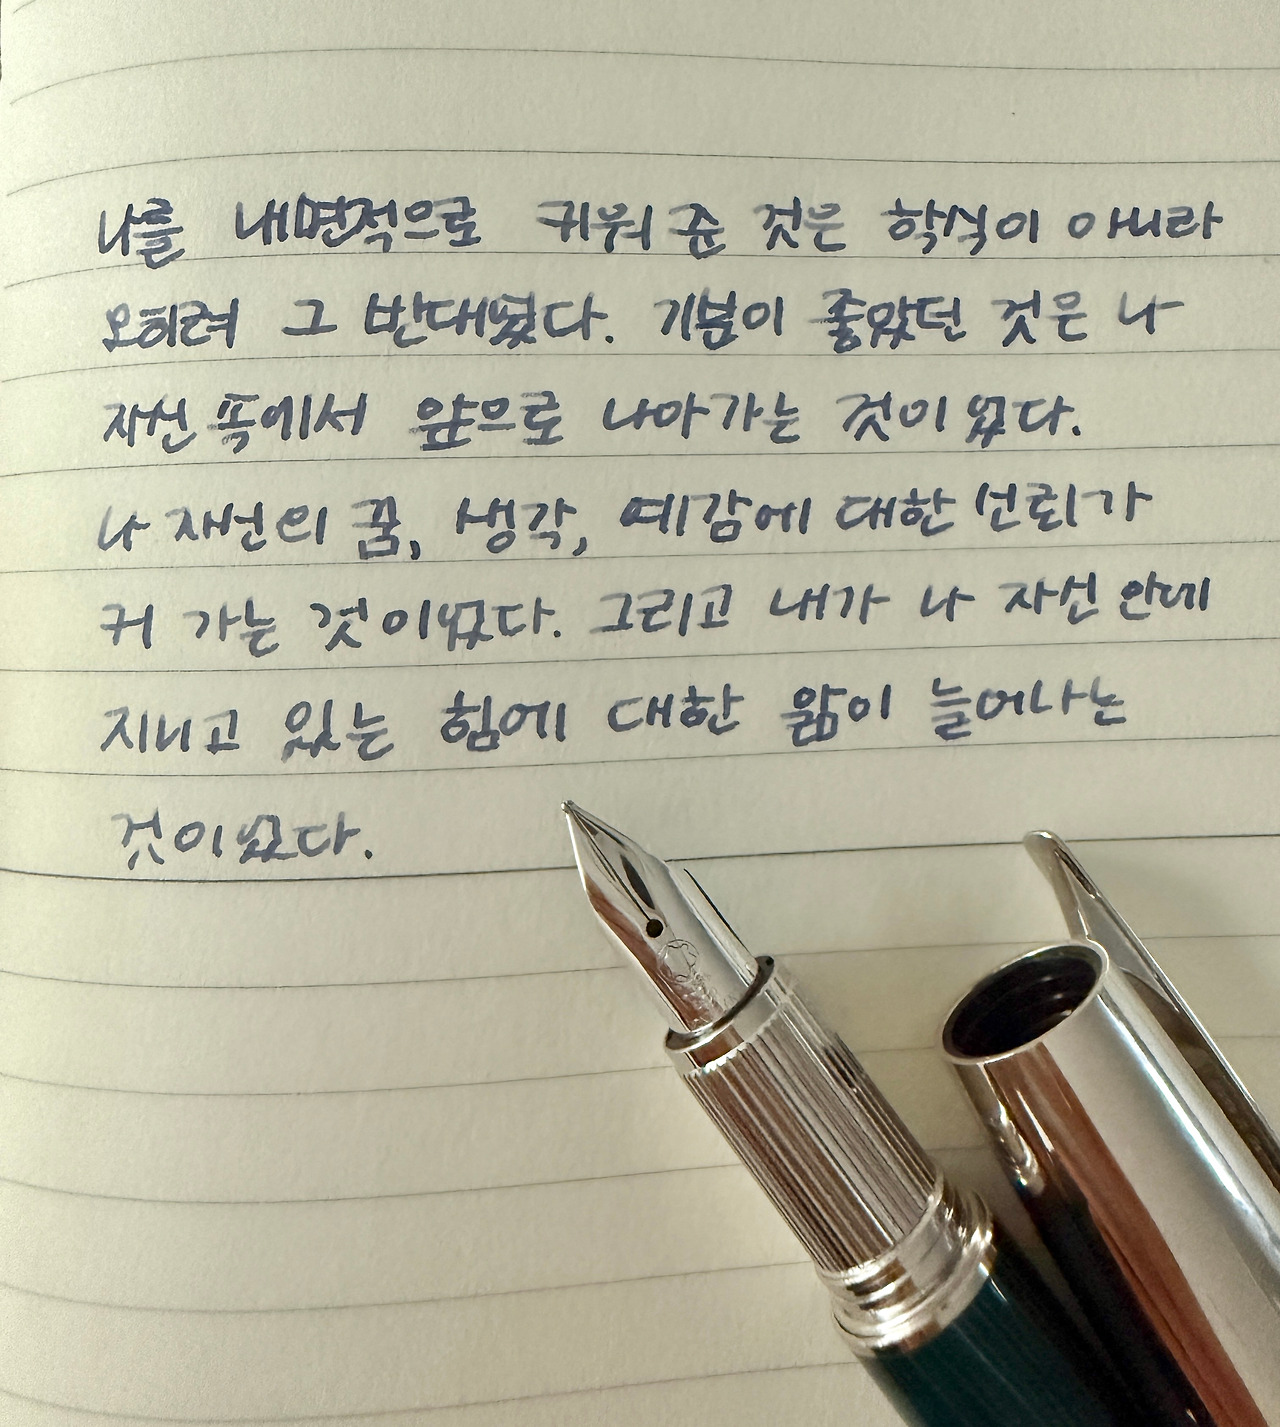 나를 내면적으로 키워 준 것은 학식이 아니라
오히려 그 반대였다. 기분이 좋았던 것은 나
자신 속에서 앞으로 나아가는 것이었다.
나 자신의 꿈, 생각, 예감에 대한 신뢰가
커 가는 것이었다. 그리고 내가 나 자신 안에
지니고 있는 힘에 대한 앎이 늘어나는
것이었다.